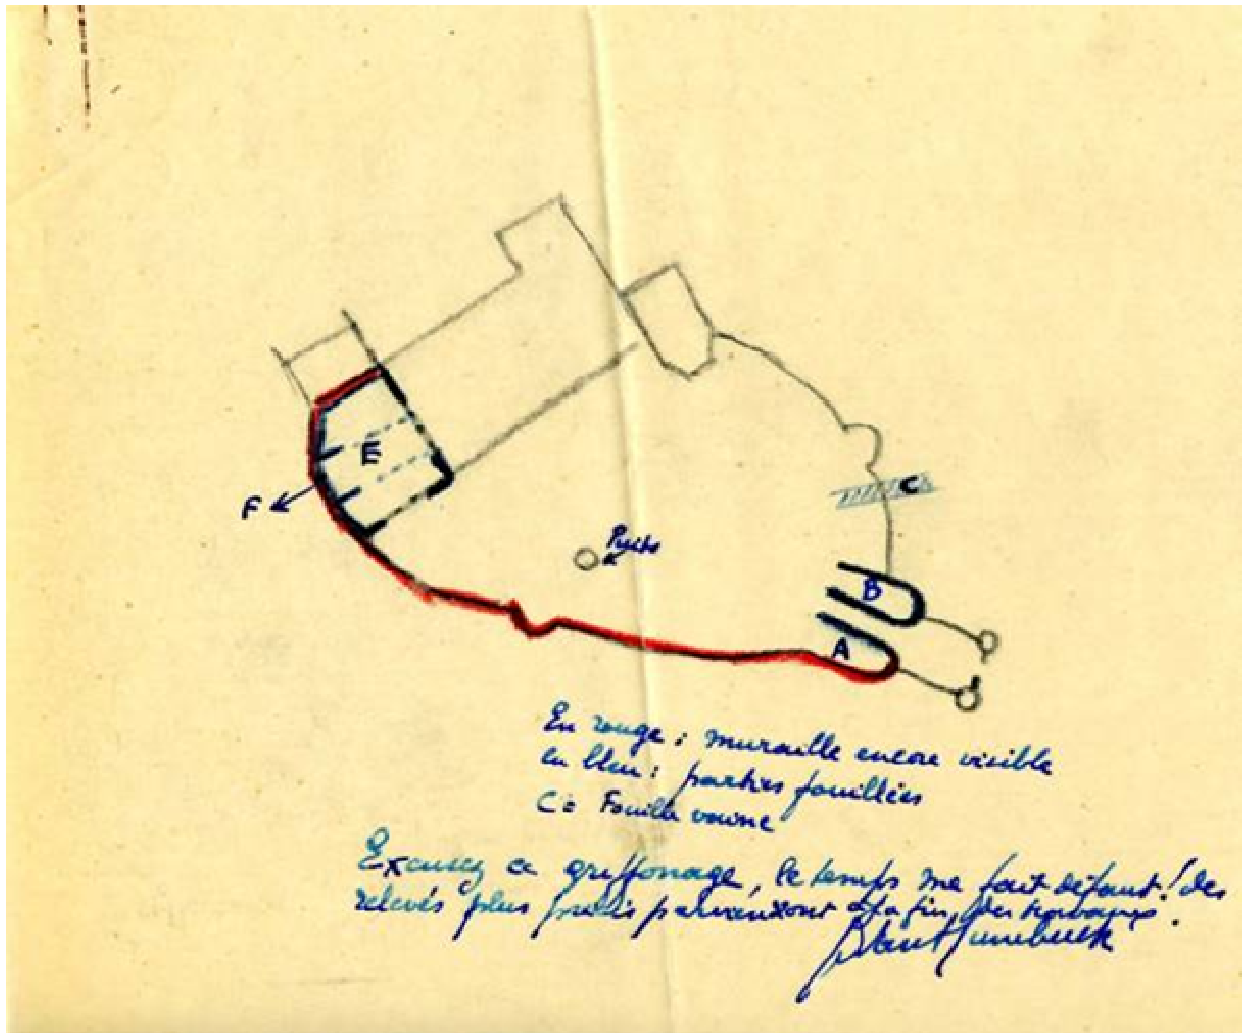 E
F
C
Puits
B
A
En rouge : muraille encore visible
en bleu : parties fouillées
C = Fouille
Excusez ce griffonage, le temps me fait défaut ! des
relevés plus précis parviendront à la fin des travaux.